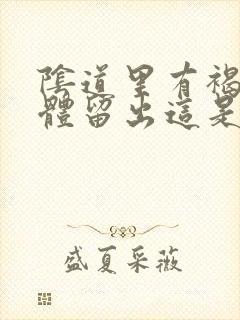 陰道里有褐
體留出這是
盛夏采薇